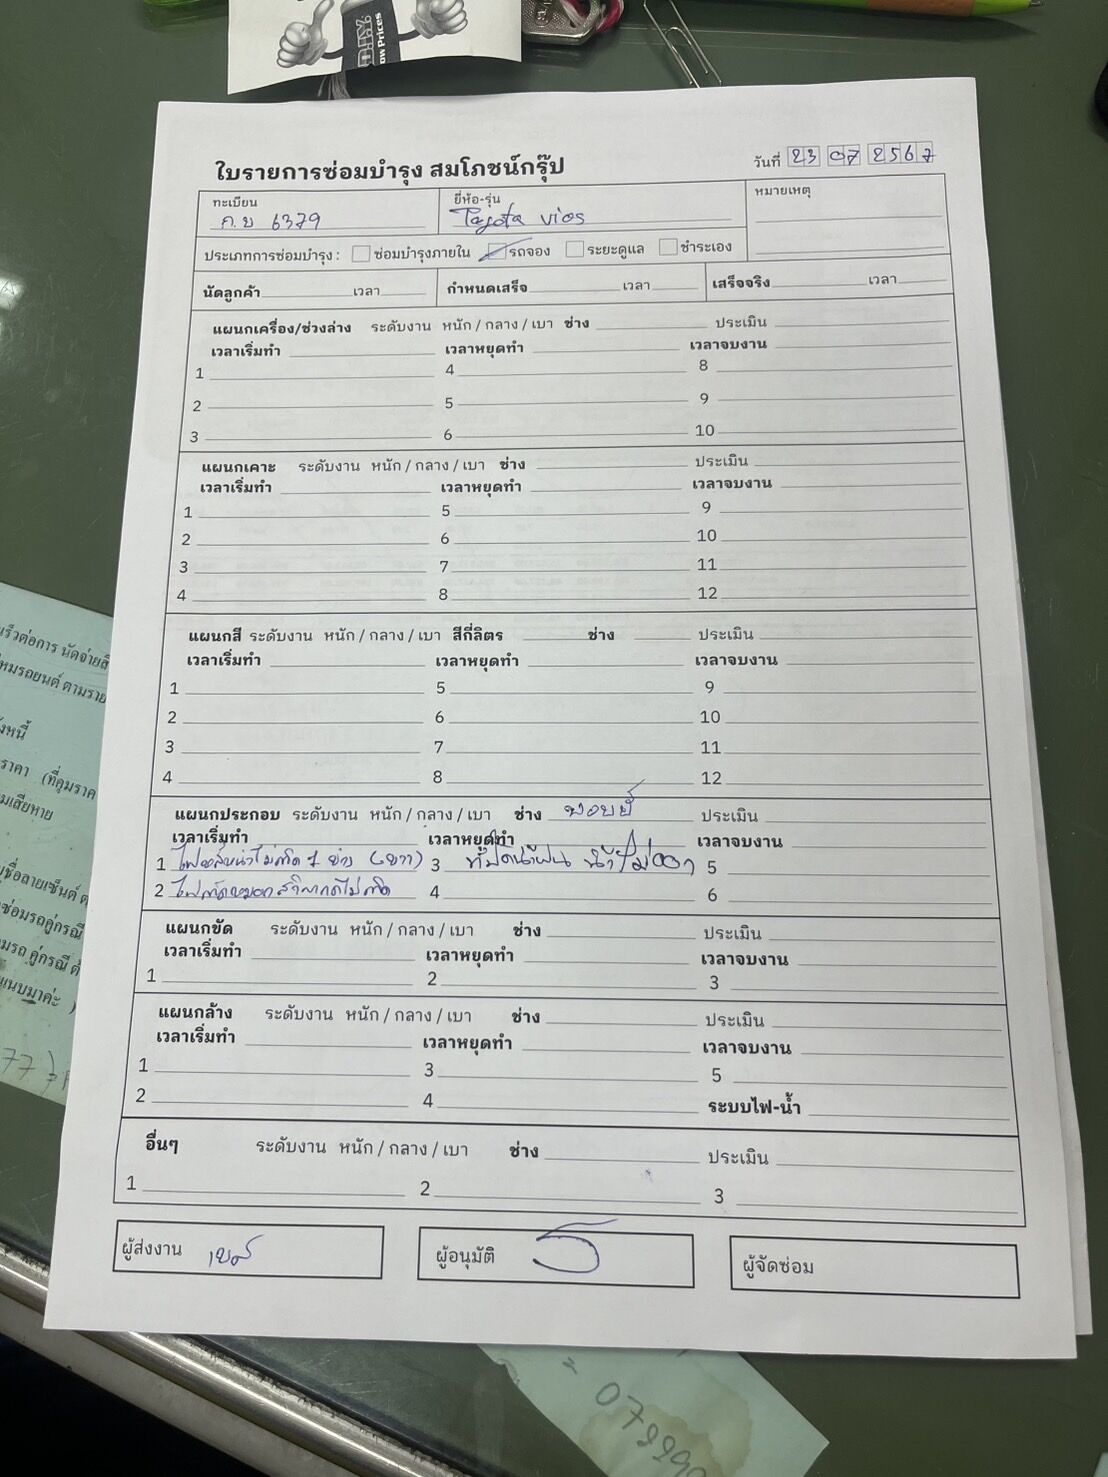 ow Prices
ใบรายการซ่อมบำรุง สมโภชน์กรุ๊ป
วันที่ 23 07 2567
ทะเบียน ก.บ 6379 ยี่ห้อ-รุ่น Toyota vios หมายเหตุ
ประเภทการซ่อมบำรุง : ซ่อมบำรุงภายใน รถจอง ระยะดูแล ชำระเอง
นัดลูกค้า เวลา กำหนดเสร็จ เวลา เสร็จจริง เวลา
แผนกเครื่อง/ช่วงล่าง ระดับงาน หนัก / กลาง / เบา ช่าง ประเมิน
เวลาเริ่มทำ เวลาหยุดทำ เวลาจบงาน
1 4 8
2 5 9
3 6 10
แผนกเคาะ ระดับงาน หนัก / กลาง / เบา ช่าง ประเมิน
เวลาเริ่มทำ เวลาหยุดทำ เวลาจบงาน
1 5 9
2 6 10
3 7 11
4 8 12
แผนกสี ระดับงาน หนัก / กลาง / เบา สีกี่ลิตร ช่าง ประเมิน
เวลาเริ่มทำ เวลาหยุดทำ เวลาจบงาน
1 5 9
2 6 10
3 7 11
4 8 12
แผนกประกอบ ระดับงาน หนัก / กลาง / เบา ช่าง ประเมิน
เวลาเริ่มทำ เวลาหยุดทำ เวลาจบงาน
1 ไม่ติด 1 ข้าง (ขวา) 3 ที่ปัดน้ำฝน น้ำไม่ออก 5
2 ไฟตัดหมอก ไม่ติด 4 6
แผนกขัด ระดับงาน หนัก / กลาง / เบา ช่าง ประเมิน
เวลาเริ่มทำ เวลาหยุดทำ เวลาจบงาน
1 2 3
แผนกล้าง ระดับงาน หนัก / กลาง / เบา ช่าง ประเมิน
เวลาเริ่มทำ เวลาหยุดทำ เวลาจบงาน
1 3 5
2 4 ระบบไฟ-น้ำ
อื่นๆ ระดับงาน หนัก / กลาง / เบา ช่าง ประเมิน
1 2 3
ผู้ส่งงาน ผู้อนุมัติ ผู้จัดซ่อม